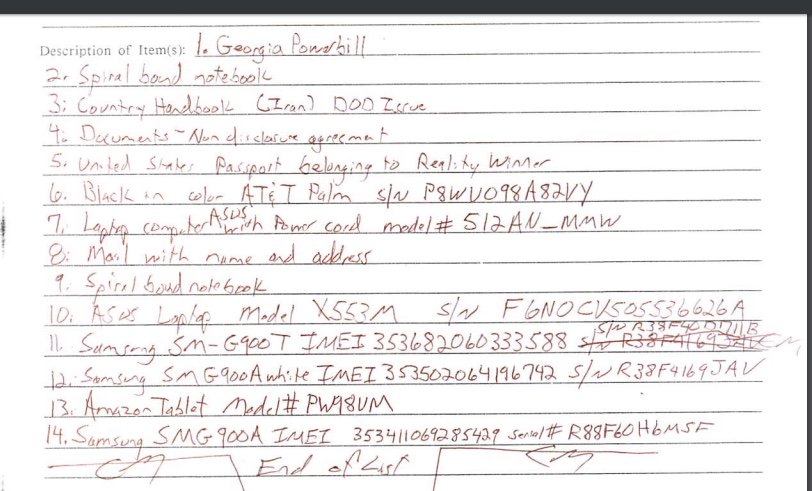 Description of Item(s): 1. Georgia Powerbill
2. Spiral bound notebook
3. Country Handbook (Iran) DOD Issue
4. Documents - Non disclosure agreement
5. United States Passport belonging to Reality Winner
6. Black in color AT&T Palm s/N P8WV098A82VY
7. Laptop computer ASUS with Power cord model# 512AN_MMW
8. Mail with name and address
9. Spiral bound notebook
10. ASUS Laptop Model X553M S/N F6N0CV505536626A
S/N R38F40D171B
11. Samsung SM-G900T IMEI 353682060333588 S/N
12. Samsung SM G900A white IMEI 353502064196742 S/N R38F4169JAV
13. Amazon Tablet Model# PW98VM
14. Samsung SMG900A IMEI 353411069285429 Serial# R88F60H6MSF
End of List